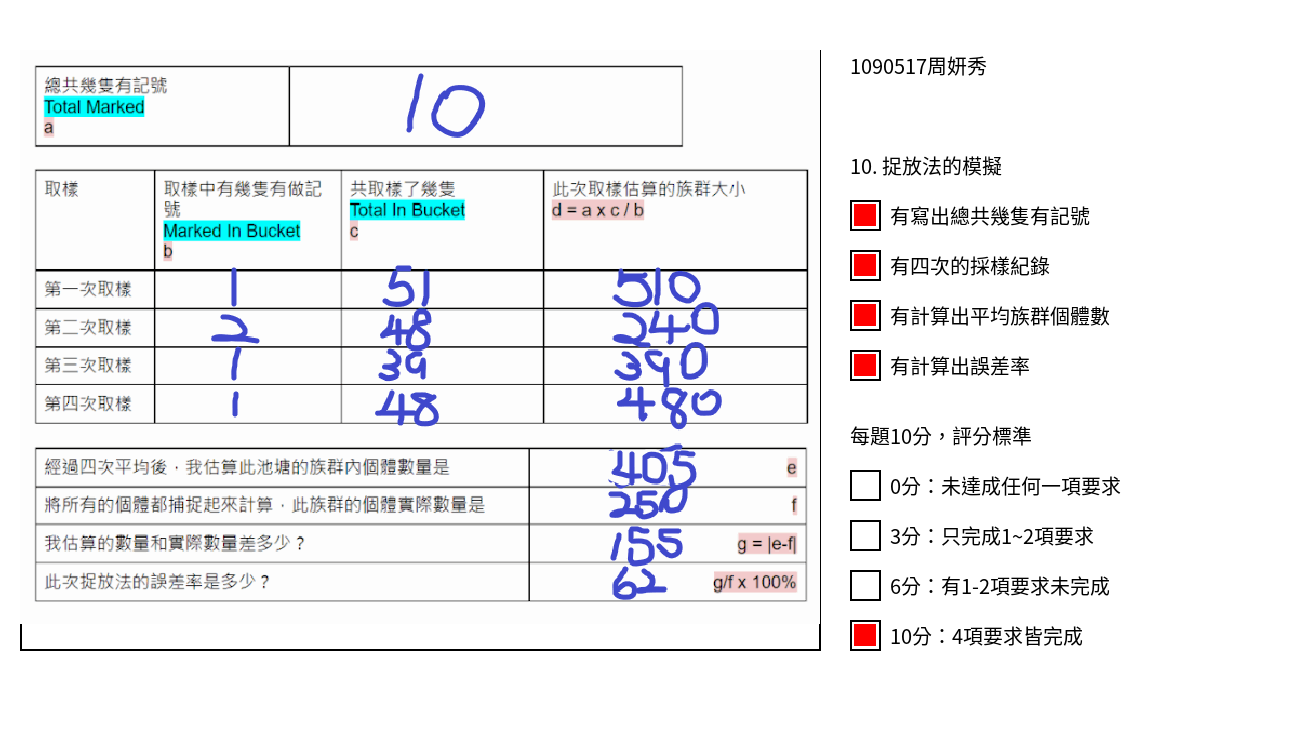 總共幾隻有記號
Total Marked
a
10
取樣
取樣中有幾隻有做記
號
Marked In Bucket
b
共取樣了幾隻
Total In Bucket
c
此次取樣估算的族群大小
d = a x c / b
第一次取樣 1 51 510
第二次取樣 2 48 240
第三次取樣 1 39 390
第四次取樣 1 48 480
經過四次平均後，我估算此池塘的族群內個體數量是 405 e
將所有的個體都捕捉起來計算，此族群的個體實際數量是 250 f
我估算的數量和實際數量差多少？ 155 g = |e-f|
此次捉放法的誤差率是多少？ 62 g/f x 100%
1090517周妍秀
10. 捉放法的模擬
有寫出總共幾隻有記號
有四次的採樣紀錄
有計算出平均族群個體數
有計算出誤差率
每題10分，評分標準
0分：未達成任何一項要求
3分：只完成1~2項要求
6分：有1-2項要求未完成
10分：4項要求皆完成